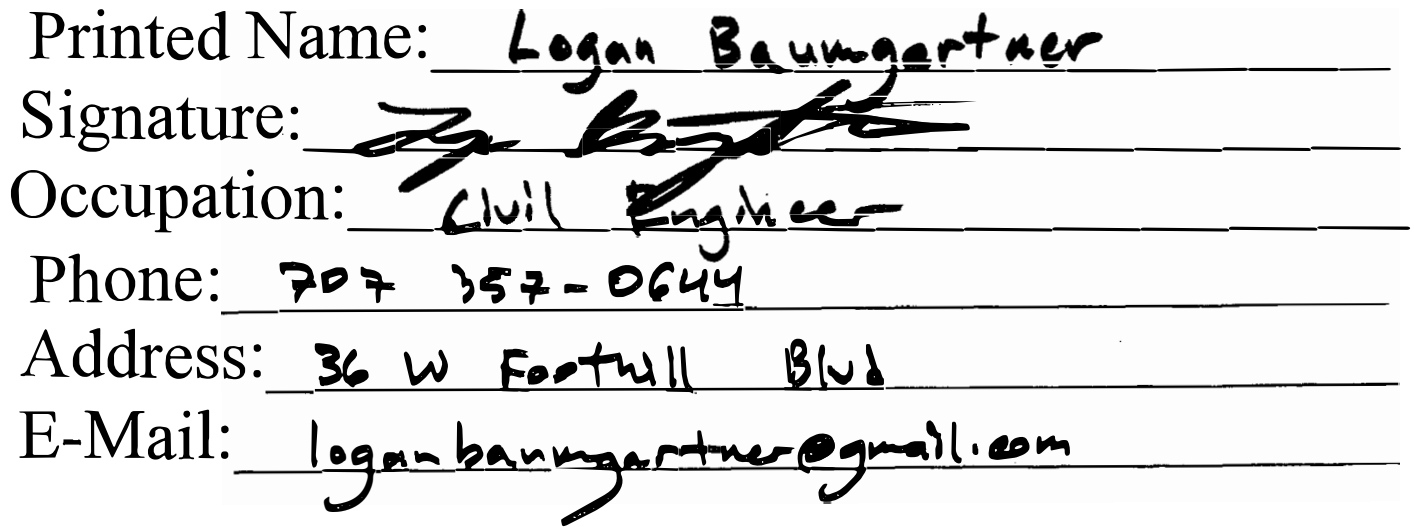 Printed Name: Logan Baumgartner
Signature:
Occupation: Civil Engineer
Phone: 707 357-0644
Address: 36 W Foothill Blvd
E-Mail: loganbaumgartner@gmail.com